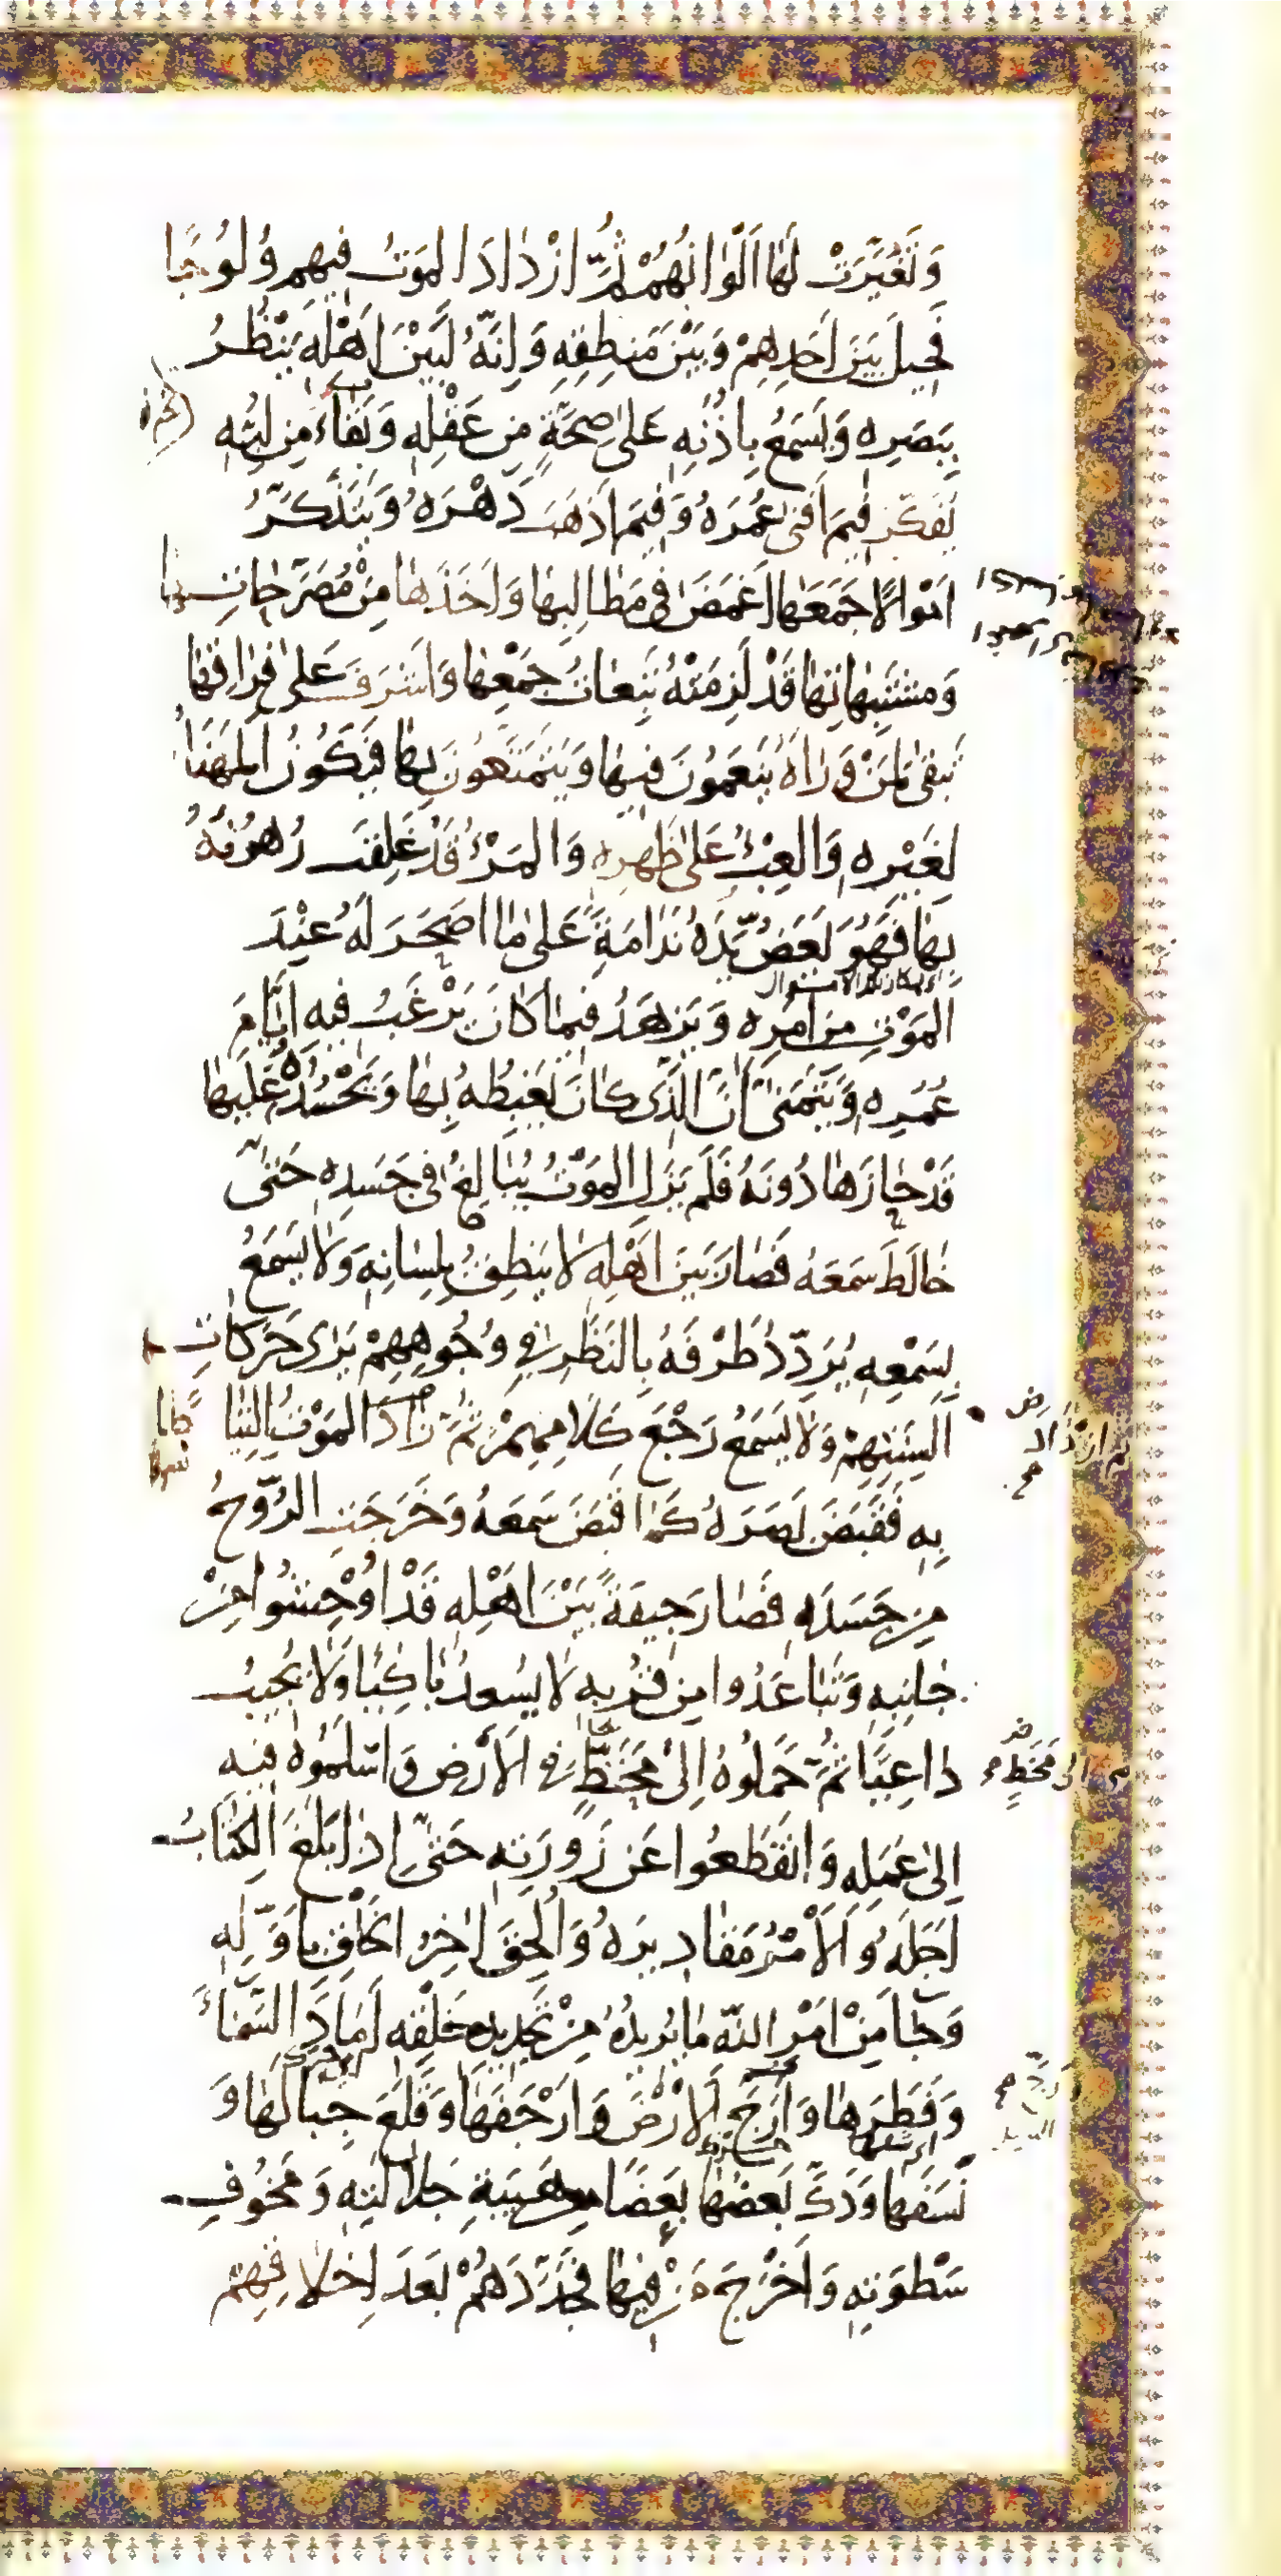 وَتَغَيَّرَتْ لَهَا اَلْوَانُهُمْ ثُمَّ ازْدَادَ المَوتُ فِيهِم وُلُوجًا
فَحِيلَ بَيْنَ اَحَدِهِمْ وَبَيْنَ مَنطِقِهِ وَاِنَّهُ لَبَيْنَ اَهْلِهِ يَنْظُرُ
بِبَصَرِهِ وَيَسْمَعُ بِاُذُنِهِ عَلىٰ صِحَّةٍ مِن عَقْلِهِ وَبَقَاءٍ مِن لُبِّهِ
يُفَكِّرُ فِيمَ اَفنى عُمُرَهُ وَفِيمَ اَذهَبَ دَهْرَهُ وَيَتَذَكَّرُ
اَمْوَالًا جَمَعَهَا اَغمَضَ فِى مَطَالِبِهَا وَاَخَذَهَا مِنْ مُصَرَّحَاتِهَا
وَمُشْتَبِهَاتِهَا قَدْ لَزِمَتْهُ تَبِعَاتُ جَمْعِهَا وَاَشرَفَ عَلىٰ فِرَاقِهَا
تَبقىٰ لِمَنْ وَرَاهُ يَنعَمُونَ فِيهَا وَيَتَمَتَّعُونَ بِهَا فَيَكُونُ المَهْنَأُ
لِغَيْرِهِ وَالعِبْءُ عَلىٰ ظَهرِهِ وَالمَرْءُ قَدْ غَلِقَتْ رُهُونُهُ
بِهَا فَهُوَ يَعَضُّ يَدَهُ نَدَامَةً عَلىٰ مَا اَصحَرَ لَهُ عِنْدَ
المَوْتِ مِن اَمرِهِ وَيَزهَدُ فِيمَا كَانَ يَرْغَبُ فِيهِ اَيَّامَ
عُمُرِهِ وَيَتَمَنّىٰ اَنَّ الَّذِى كَانَ يَغبِطُهُ بِهَا وَيَحْسُدُهُ عَلَيهَا
قَدْ حَازَهَا دُونَهُ فَلَم يَزَلِ المَوْتُ يُبَالِغُ فِى جَسَدِهِ حَتّىٰ
خَالَطَ سَمعَهُ فَصَارَ بَيْنَ اَهْلِهِ لَا يَنطِقُ بِلِسَانِهِ وَلَا يَسمَعُ
بِسَمْعِهِ يُرَدِّدُ طَرْفَهُ بِالنَّظَرِ فِى وُجُوهِهِمْ يَرىٰ حَرَكَاتِ
اَلسِنَتِهِمْ وَلَا يَسمَعُ رَجْعَ كَلَامِهِمْ ثُمَّ زَادَ المَوْتُ التِيَاطًا
بِهِ فَقَبَضَ بَصَرَهُ كَمَا قَبَضَ سَمعَهُ وَخَرَجَتِ الرُّوحُ
مِن جَسَدِهِ فَصَارَ جِيفَةً بَيْنَ اَهْلِهِ قَدْ اُوْحِشُوا مِنْ
جَانِبِهِ وَتَبَاعَدُوا مِن قُرْبِهِ لَا يُسعِدُ بَاكِيًا وَلَا يُجِيبُ
دَاعِيًا ثُمَّ حَمَلُوهُ اِلىٰ مَخَطٍّ فِى الاَرْضِ وَاَسْلَمُوهُ فِيهِ
ثم ازْدَادَ
الى مَحَطٍّ
اِلىٰ عَمَلِهِ وَانقَطَعُوا عَن زَورَتِهِ حَتّىٰ اِذَا بَلَغَ الكِتَابُ
اَجَلَهُ وَالاَمْرُ مَقَادِيرَهُ وَاُلحِقَ آخِرُ الخَلْقِ بِاَوَّلِهِ
وَجَاءَ مِنْ اَمْرِ اللّهِ مَا يُرِيدُهُ مِنْ تَجدِيدِ خَلْقِهِ اَمَادَ السَّمَاءَ
وَفَطَرَهَا وَاَرَجَّ الاَرْضَ وَاَرْجَفَهَا وَقَلَعَ جِبَالَهَا وَ
نَسَفَهَا وَدَكَّ بَعضُهَا بَعضًا مِن هَيبَةِ جَلَالَتِهِ وَمَخُوفِ
سَطْوَتِهِ وَاَخْرَجَ مَنْ فِيهَا فَجَدَّدَهُمْ بَعدَ اِخلَاقِهِمْ